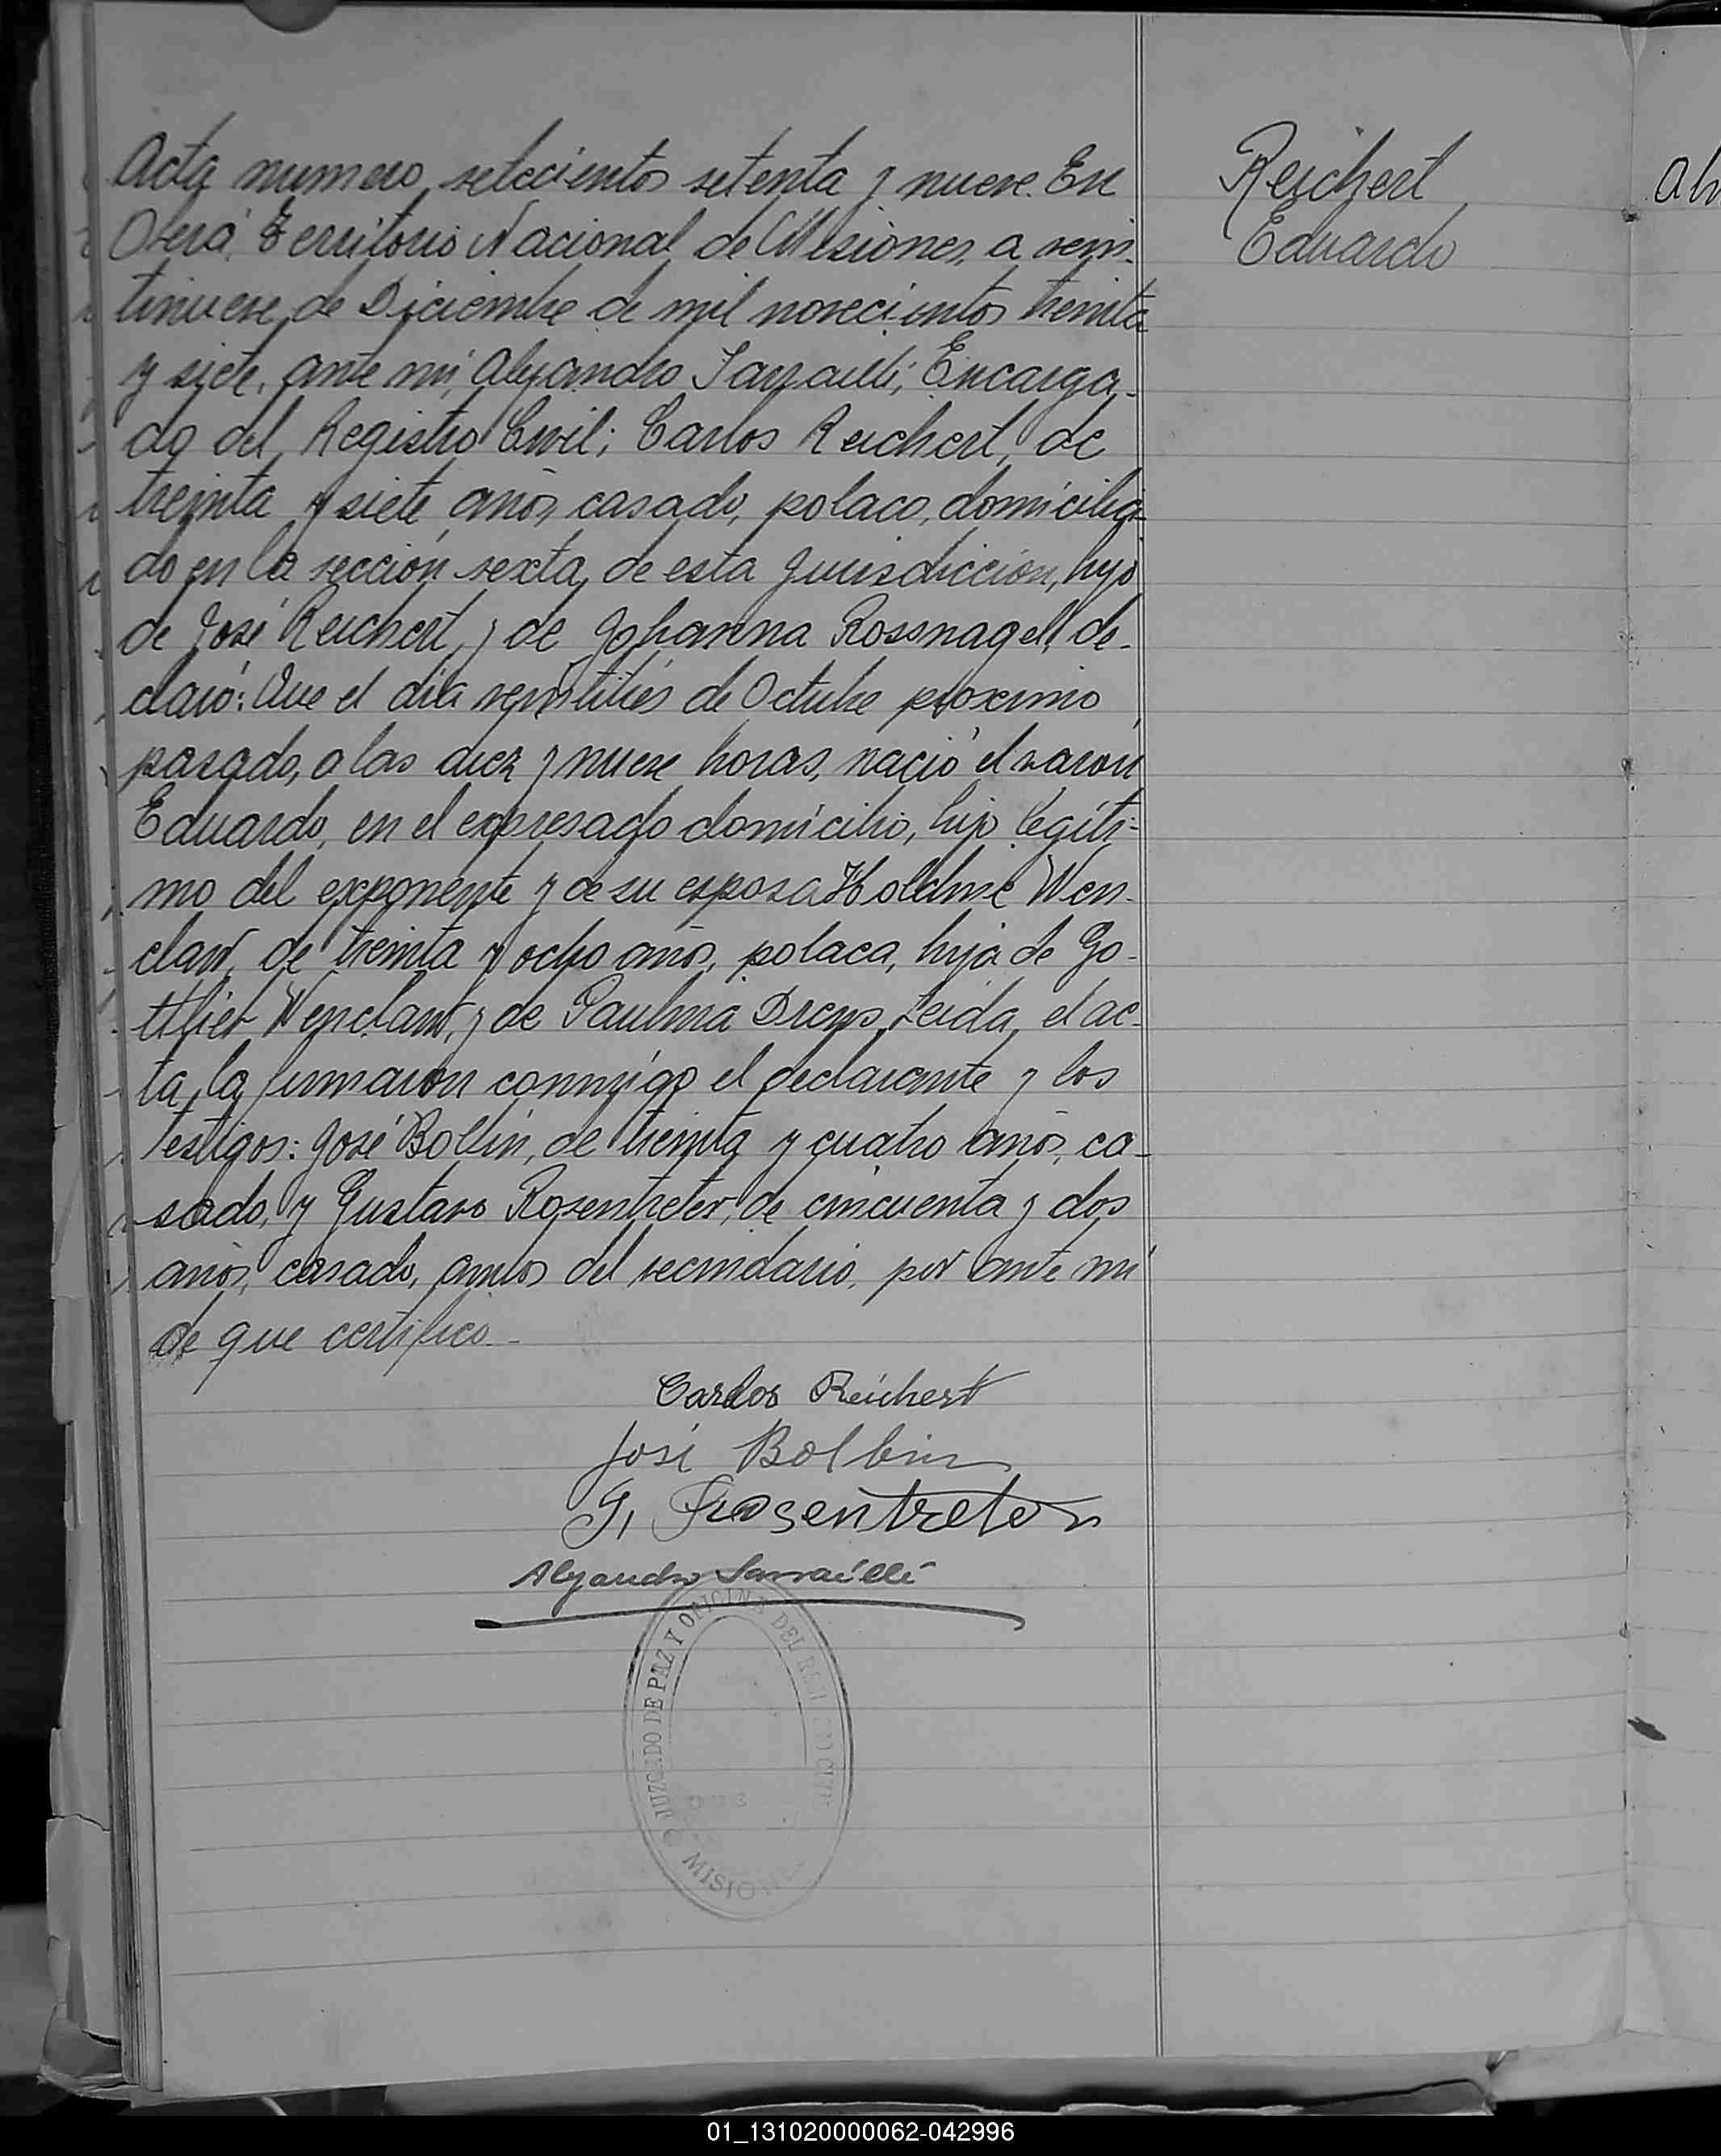 Acta numero setecientos setenta y nueve. En
Oberá Territorio Nacional de Misiones, a vein-
tinueve de Diciembre de mil novecientos treinta
y siete, ante mi, Alejandro Sarrailli; Encarga-
do del Registro Civil; Carlos Reichert, de
treinta y siete años, casado, polaco, domicilia-
do en la sección sexta, de esta jurisdicción, hijo
de José Reichert, y de Johanna Rossnagell, de-
claró: Que el día veintitrés de Octubre próximo
pasado, a las diez y nueve horas, nació el varón
Eduardo, en el expresado domicilio, hijo legíti-
mo del exponente y de su esposa Wen-
claw, de treinta y ocho años, polaca, hija de Go-
ttlieb Wenclaw, y de Paulina Leida, el ac-
ta, la firmaron conmigo el declarante y los
testigos: José Bolbin, de treinta y cuatro años, ca-
sado, y Gustavo Rosentreter, de cincuenta y dos
años, casado, ambos del vecindario, por ante mi
de que certifico.-
Reichert
Eduardo
Carlos Reichert
José Bolbin
G. Rosentreter
Alejandro Sarrailli
JUZGADO DE PAZ Y OFICINA DEL
MISIONES
01_131020000062-042996